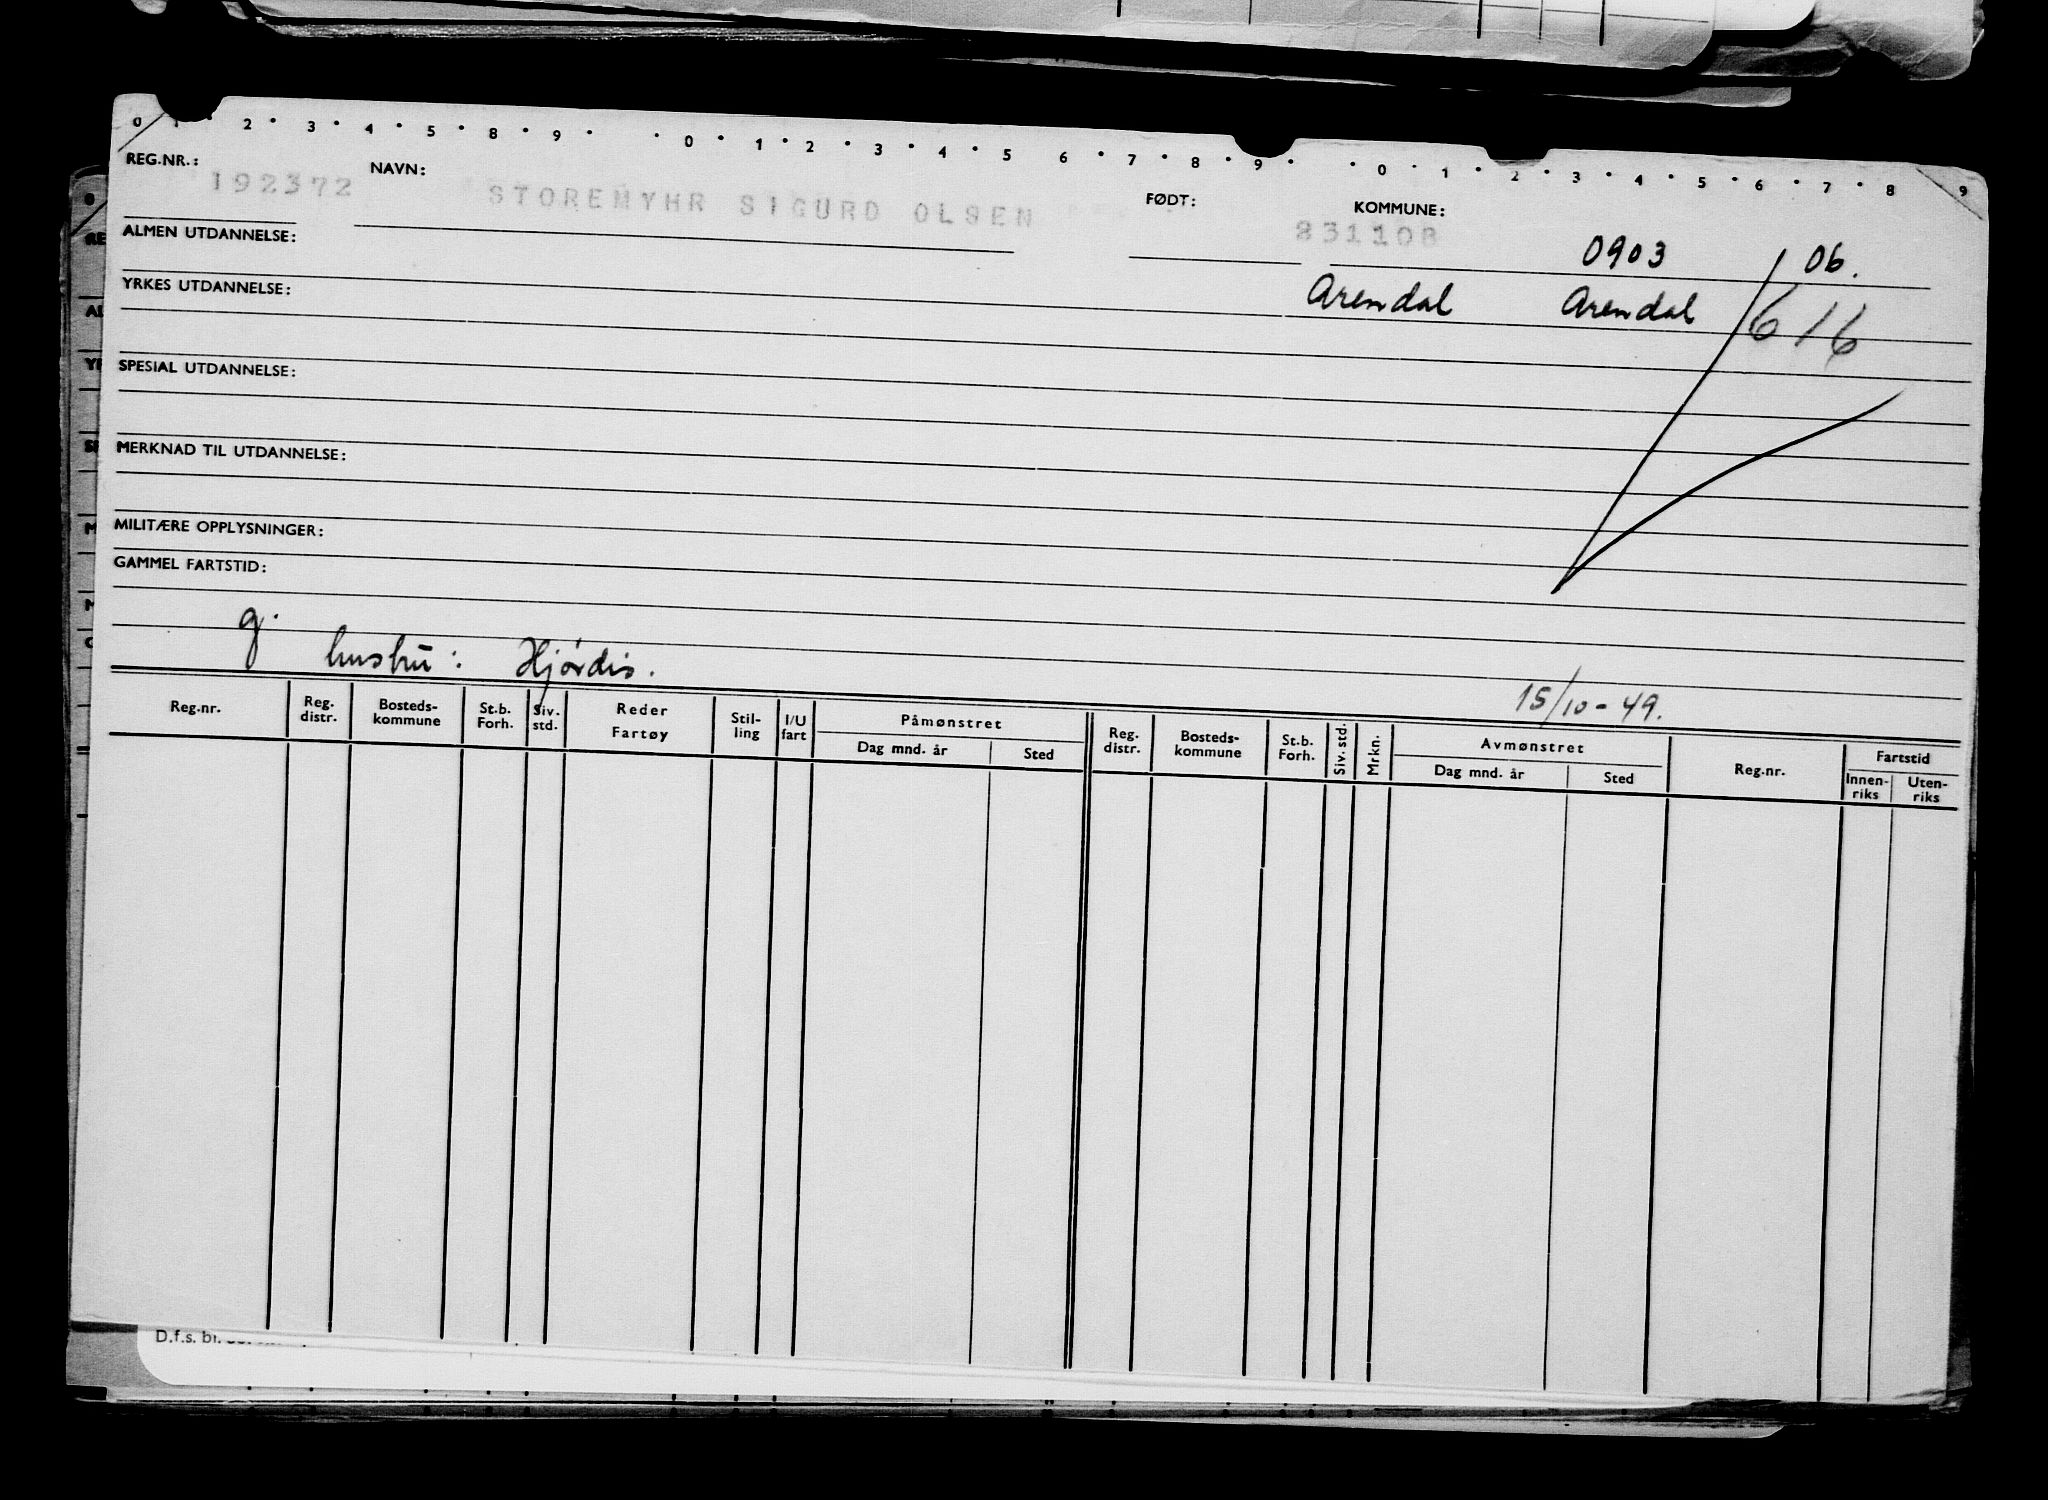 0 1 2 3 4 5 8 9 0 1 2 3 4 5 6 7 8 9 0 1 2 3 4 5 6 7 8 9
REG.NR.: NAVN: FØDT: KOMMUNE:
192372 STOREMYHR SIGURD OLSEN 831108 0903 06.
ALMEN UTDANNELSE:
Arendal Arendal 616
YRKES UTDANNELSE:
SPESIAL UTDANNELSE:
MERKNAD TIL UTDANNELSE:
MILITÆRE OPPLYSNINGER:
GAMMEL FARTSTID:
g. hustru: Hjørdis.
15/10-49.
Reg.nr. Reg. distr. Bosteds-kommune St.b. Forh. Siv. std. Reder Fartøy Stil-ling I/U fart Påmønstret Dag mnd. år Sted Reg. distr. Bosteds-kommune St.b. Forh. Siv. std. Mrkn. Avmønstret Dag mnd. år Sted Reg.nr. Fartstid Innen-riks Uten-riks
D.f.s. bl.